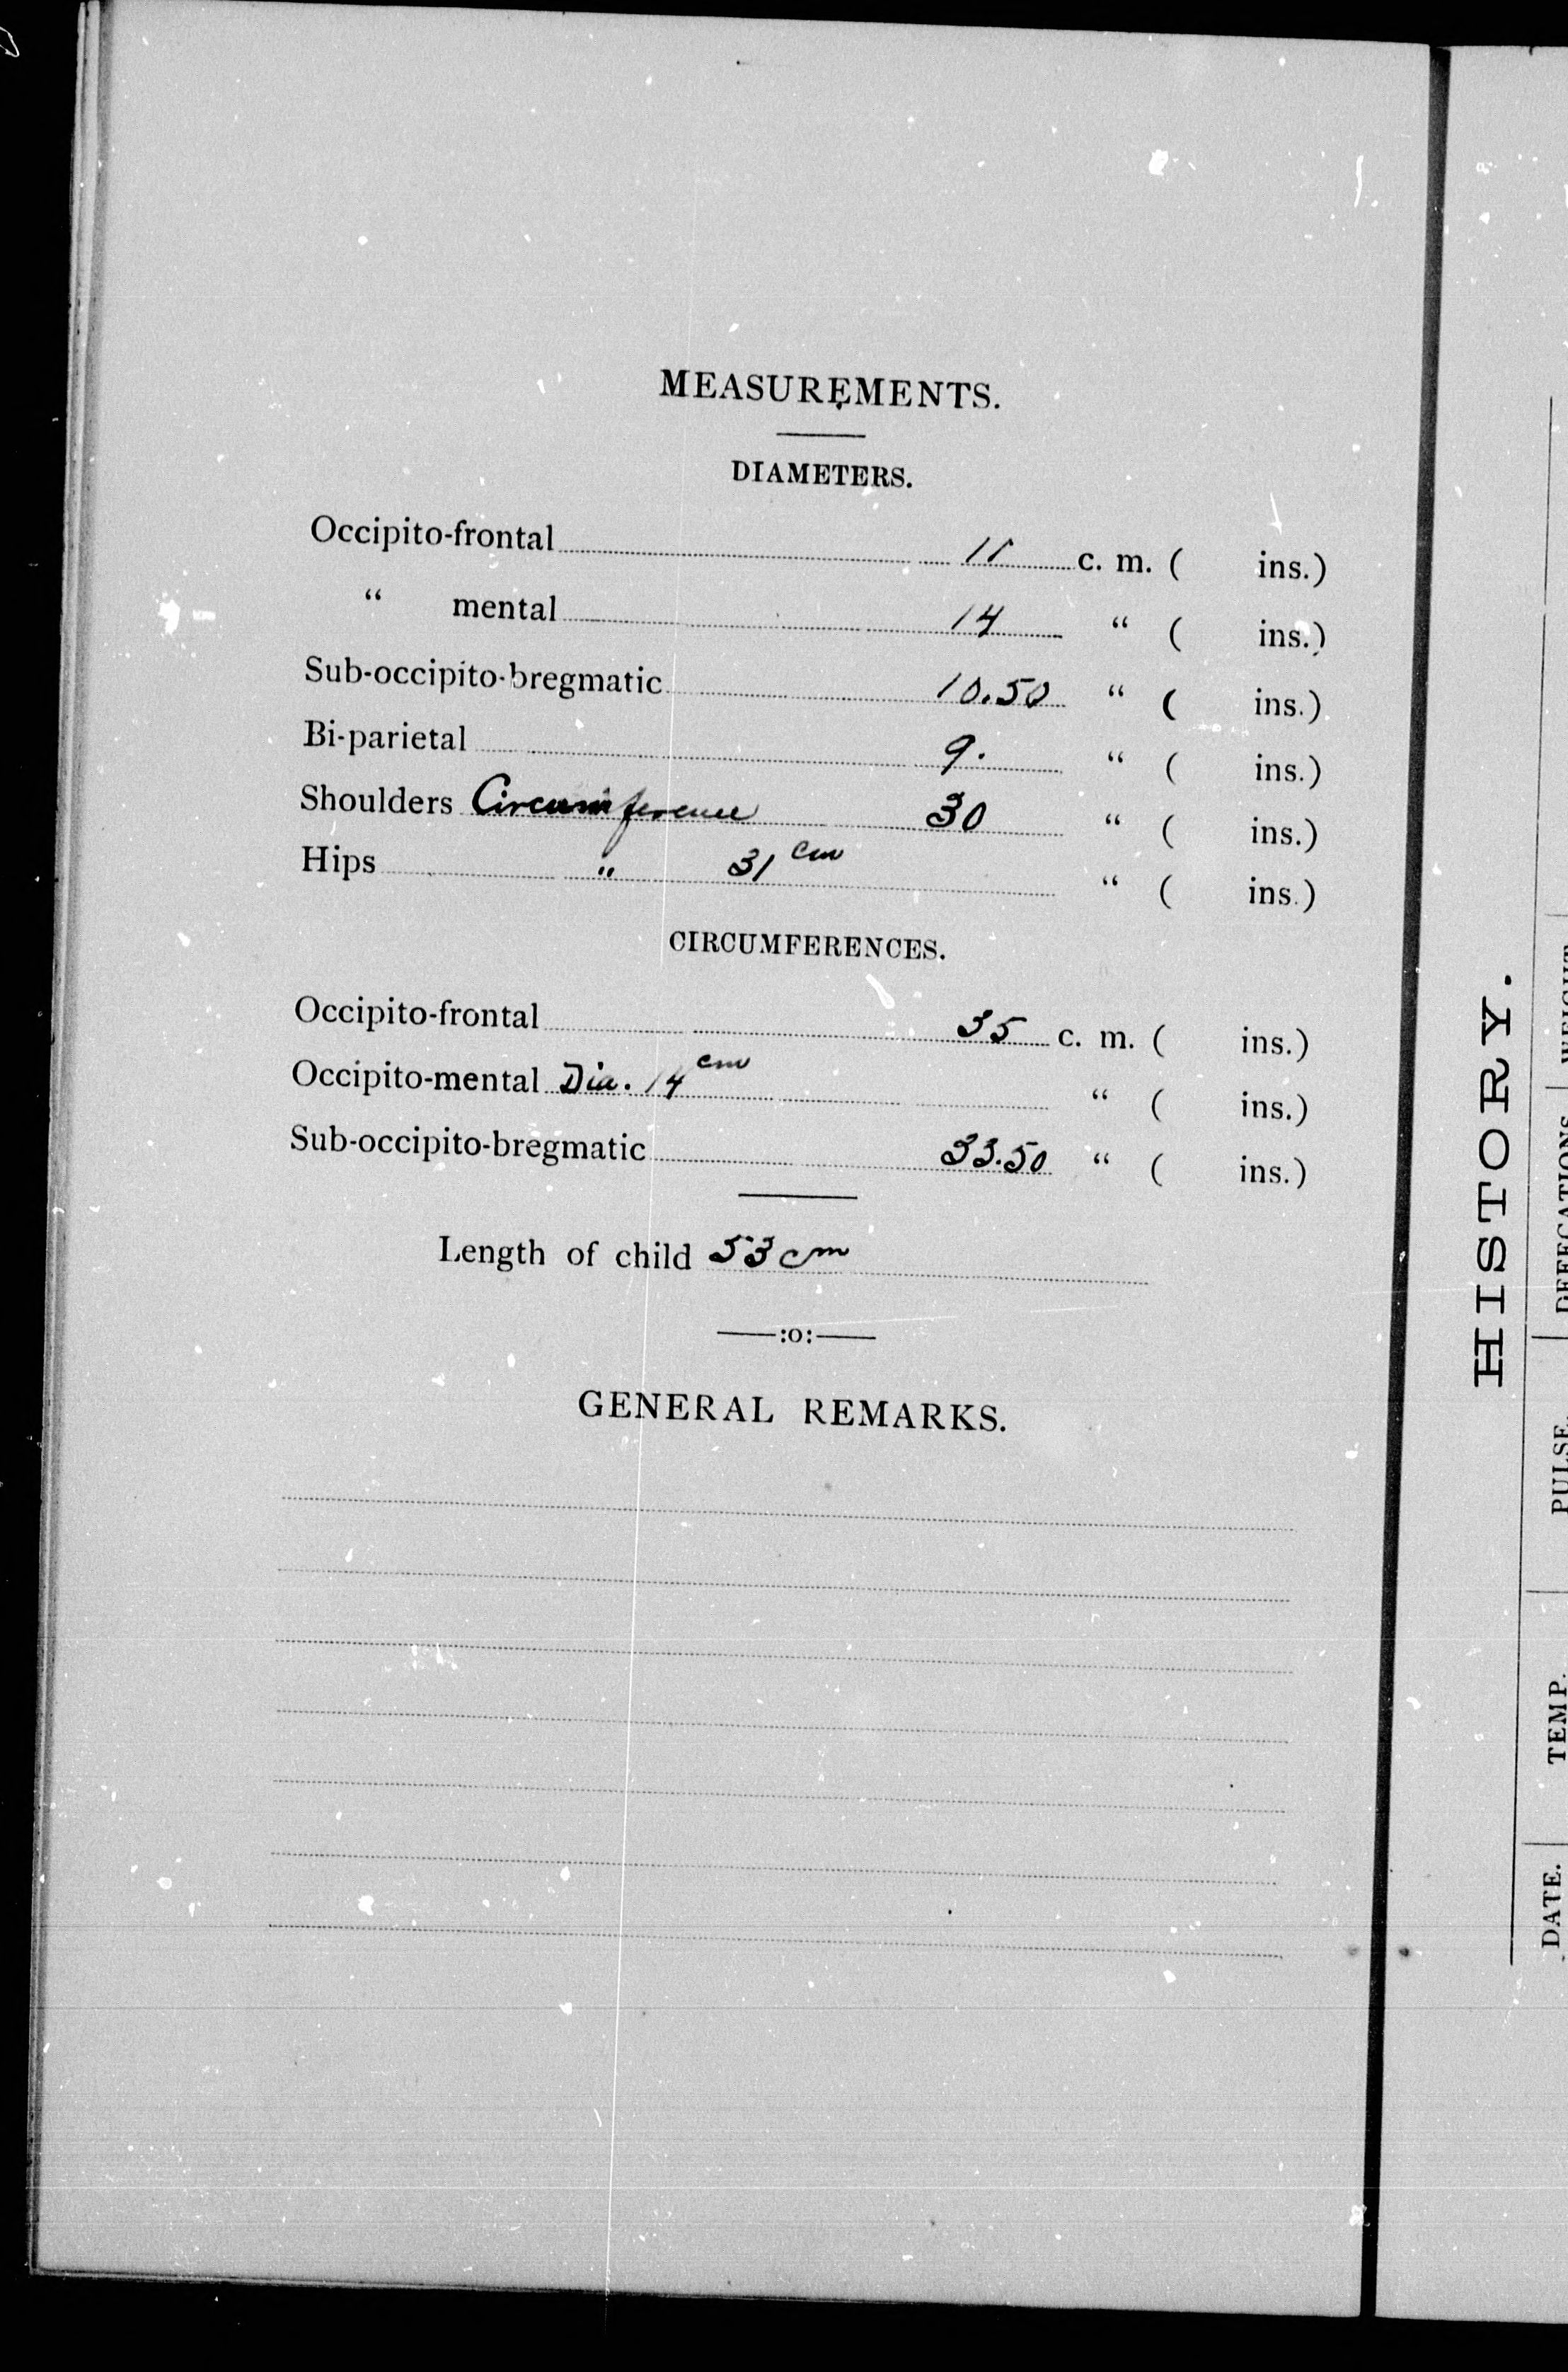 MEASUREMENTS.
DIAMETERS.
Occipito-frontal 11 c. m. ( ins.)
“ mental 14 “ ( ins.)
Sub-occipito-bregmatic 10.50 “ ( ins.)
Bi-parietal 9. “ ( ins.)
Shoulders Circumference 30 “ ( ins.)
Hips " 31 cm “ ( ins.)
CIRCUMFERENCES.
Occipito-frontal 35 c. m. ( ins.)
Occipito-mental Dia. 14 cm “ ( ins.)
Sub-occipito-bregmatic 33.50 “ ( ins.)
Length of child 53 cm
:o:
GENERAL REMARKS.
HISTORY.
DATE. TEMP. PULSE. DEFECATIONS